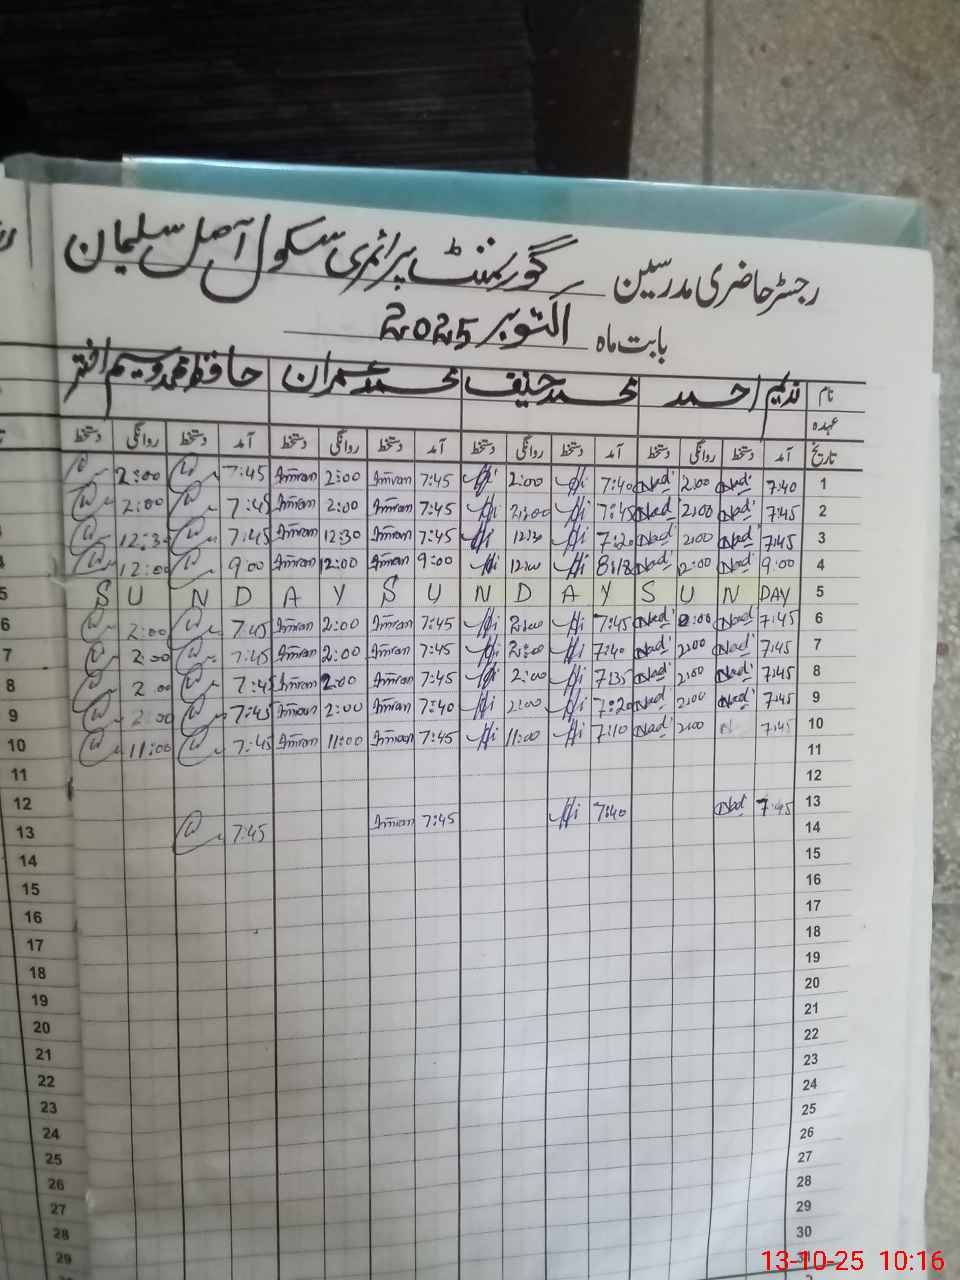 رجسٹر حاضری مدرسین گورنمنٹ پرائمری سکول آصل سلیمان
بابت ماہ اکتوبر 2025
نام ندیم احمد محمد حنیف محمد عمران حافظ محمد وسیم اختر
عہدہ
تاریخ آمد دستخط روانگی دستخط آمد دستخط روانگی دستخط آمد دستخط روانگی دستخط آمد دستخط روانگی دستخط
1 7:40 Nad 2:00 Nad 7:40 Hi 2:00 Hi 7:45 Imran 2:00 Imran 7:45 2:00
2 7:45 Nad 2:00 Nad 7:45 Hi 2:00 Hi 7:45 Imran 2:00 Imran 7:45 2:00
3 7:45 Nad 2:00 Nad 7:20 Hi 12:30 Hi 7:45 Imran 12:30 Imran 7:45 12:30
4 9:00 Nad 2:00 Nad Hi 12:00 Hi 9:00 Imran 12:00 Imran 9:00 12:00
5 S U N D A Y S U N D A Y S U N DAY
6 7:45 Nad 2:00 Nad 7:45 Hi 2:00 Hi 7:45 Imran 2:00 Imran 7:45 2:00
7 7:45 Nad 2:00 Nad 7:40 Hi 2:00 Hi 7:45 Imran 2:00 Imran 7:45 2:00
8 7:45 Nad 2:00 Nad 7:35 Hi 2:00 Hi 7:45 Imran 2:00 Imran 7:45 2:00
9 7:45 Nad 2:00 Nad 7:20 Hi 2:00 Hi 7:40 Imran 2:00 Imran 7:45 2:00
10 7:45 N 2:00 Nad 7:10 Hi 11:00 Hi 7:45 Imran 11:00 Imran 7:45 11:00
11
12
13 7:45 Nad 7:40 Hi 7:45 Imran 7:45
14
15
16
17
18
19
20
21
22
23
24
25
26
27
28
29
30
31
5
6
7
8
9
10
11
12
13
14
15
16
17
18
19
20
21
22
23
24
25
26
27
28
29
13-10-25 10:16